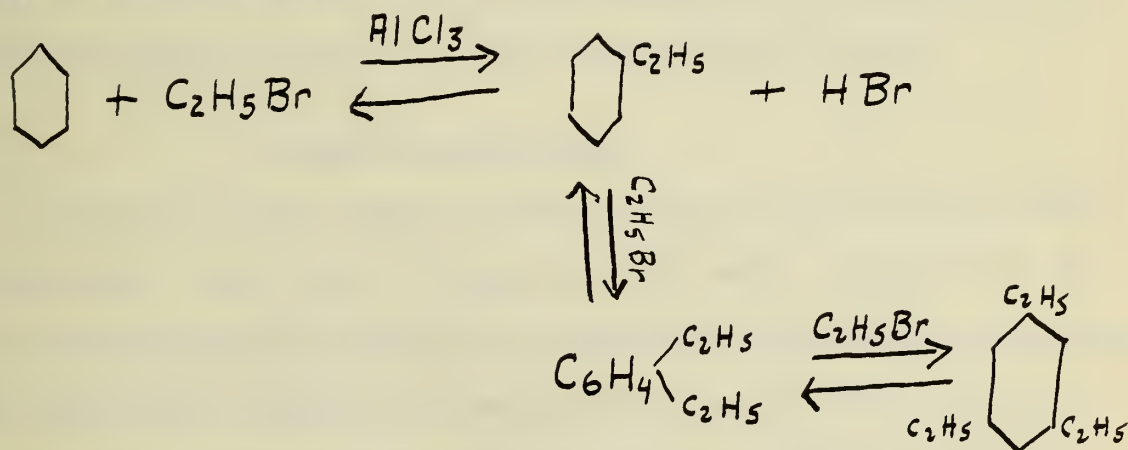 AlCl3
+ C2H5Br
C2H5
+ HBr
C2H5Br
C6H4
C2H5
C2H5
C2H5Br
C2H5
C2H5
C2H5